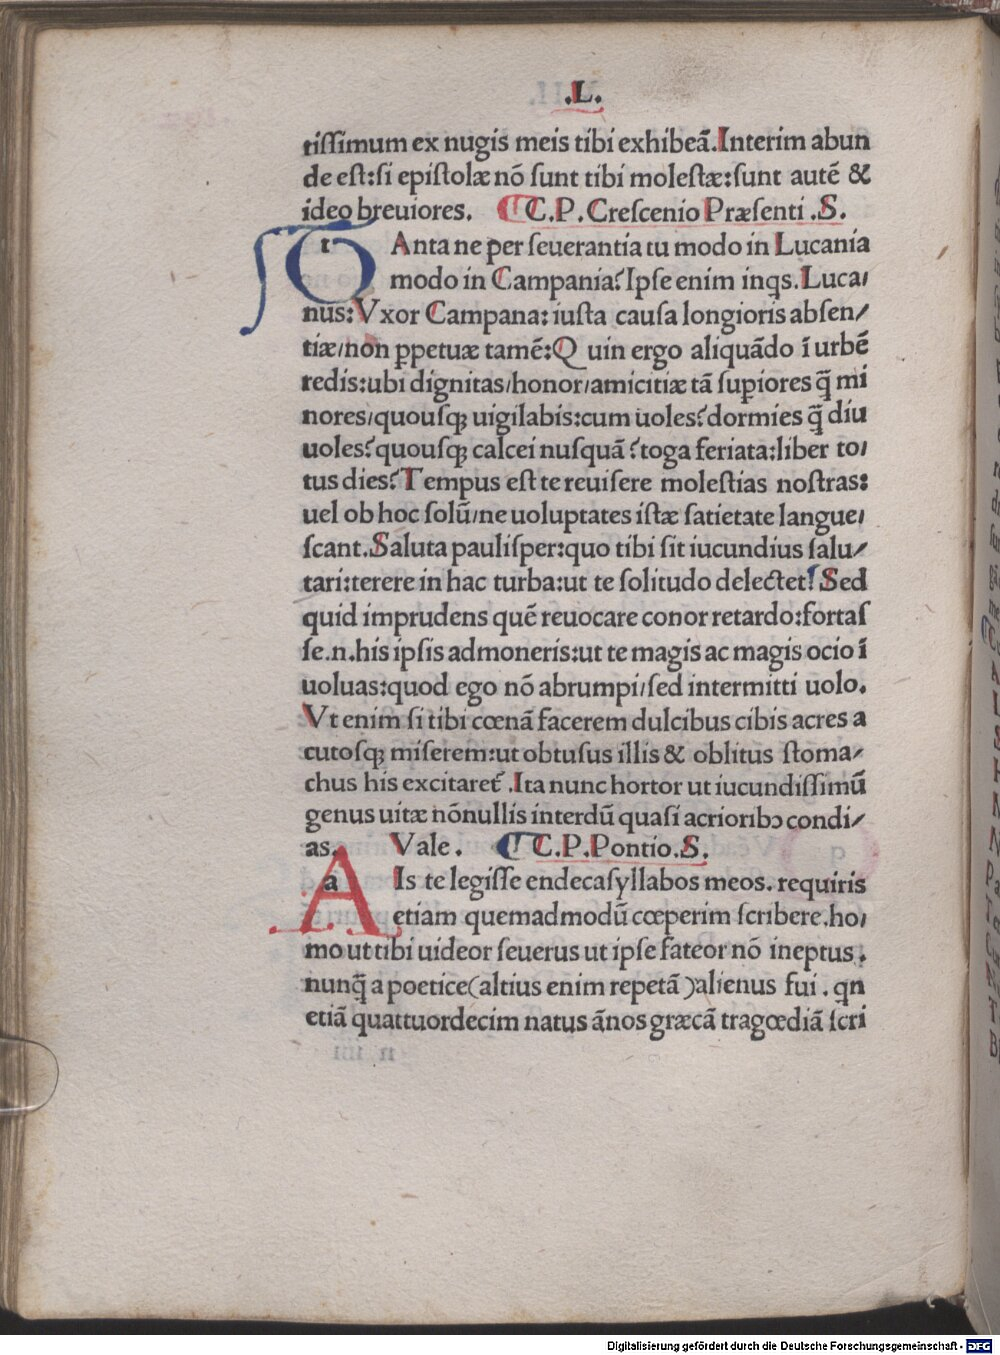 .L.
tissimum ex nugis meis tibi exhibeā. Interim abun
de est: si epistolæ nō sunt tibi molestæ: sunt autē &
ideo breuiores. C. P. Crescenio Præsenti .S.
t Anta ne per seuerantia tu modo in Lucania
modo in Campania? Ipse enim inqs. Luca/
nus: Vxor Campana: iusta causa longioris absen/
tiæ/non ꝑpetuæ tamē: Q uin ergo aliquādo ī urbē
redis: ubi dignitas/honor/amicitiæ tā suꝑiores q̄ mi
nores/quousqꝫ uigilabis: cum uoles? dormies q̄ diu
uoles? quousqꝫ calcei nusquā? toga feriata: liber to/
tus dies? Tempus est te reuisere molestias nostras:
uel ob hoc solū/ne uoluptates istæ satietate langue/
scant. Saluta paulisper: quo tibi sit iucundius salu/
tari: terere in hac turba: ut te solitudo delectet? Sed
quid imprudens quē reuocare conor retardo: fortas
se .n. his ipsis admoneris: ut te magis ac magis ocio ī
uoluas: quod ego nō abrumpi/sed intermitti uolo.
Vt enim si tibi cœnā facerem dulcibus cibis acres a
cutosqꝫ miserem: ut obtusus illis & oblitus stoma/
chus his excitaret᷑. Ita nunc hortor ut iucundissimū
genus uitæ nōnullis interdū quasi acrioribꝰ condi/
as. Vale. C. P. Pontio. S.
a Is te legisse endecasyllabos meos. requiris
etiam quemadmodū cœperim scribere. ho/
mo ut tibi uideor seuerus ut ipse fateor nō ineptus.
nunq̄ a poetice (altius enim repetā) alienus fui. qn
etiā quattuordecim natus ānos græcā tragœdiā scri
Digitalisierung gefördert durch die Deutsche Forschungsgemeinschaft - DFG